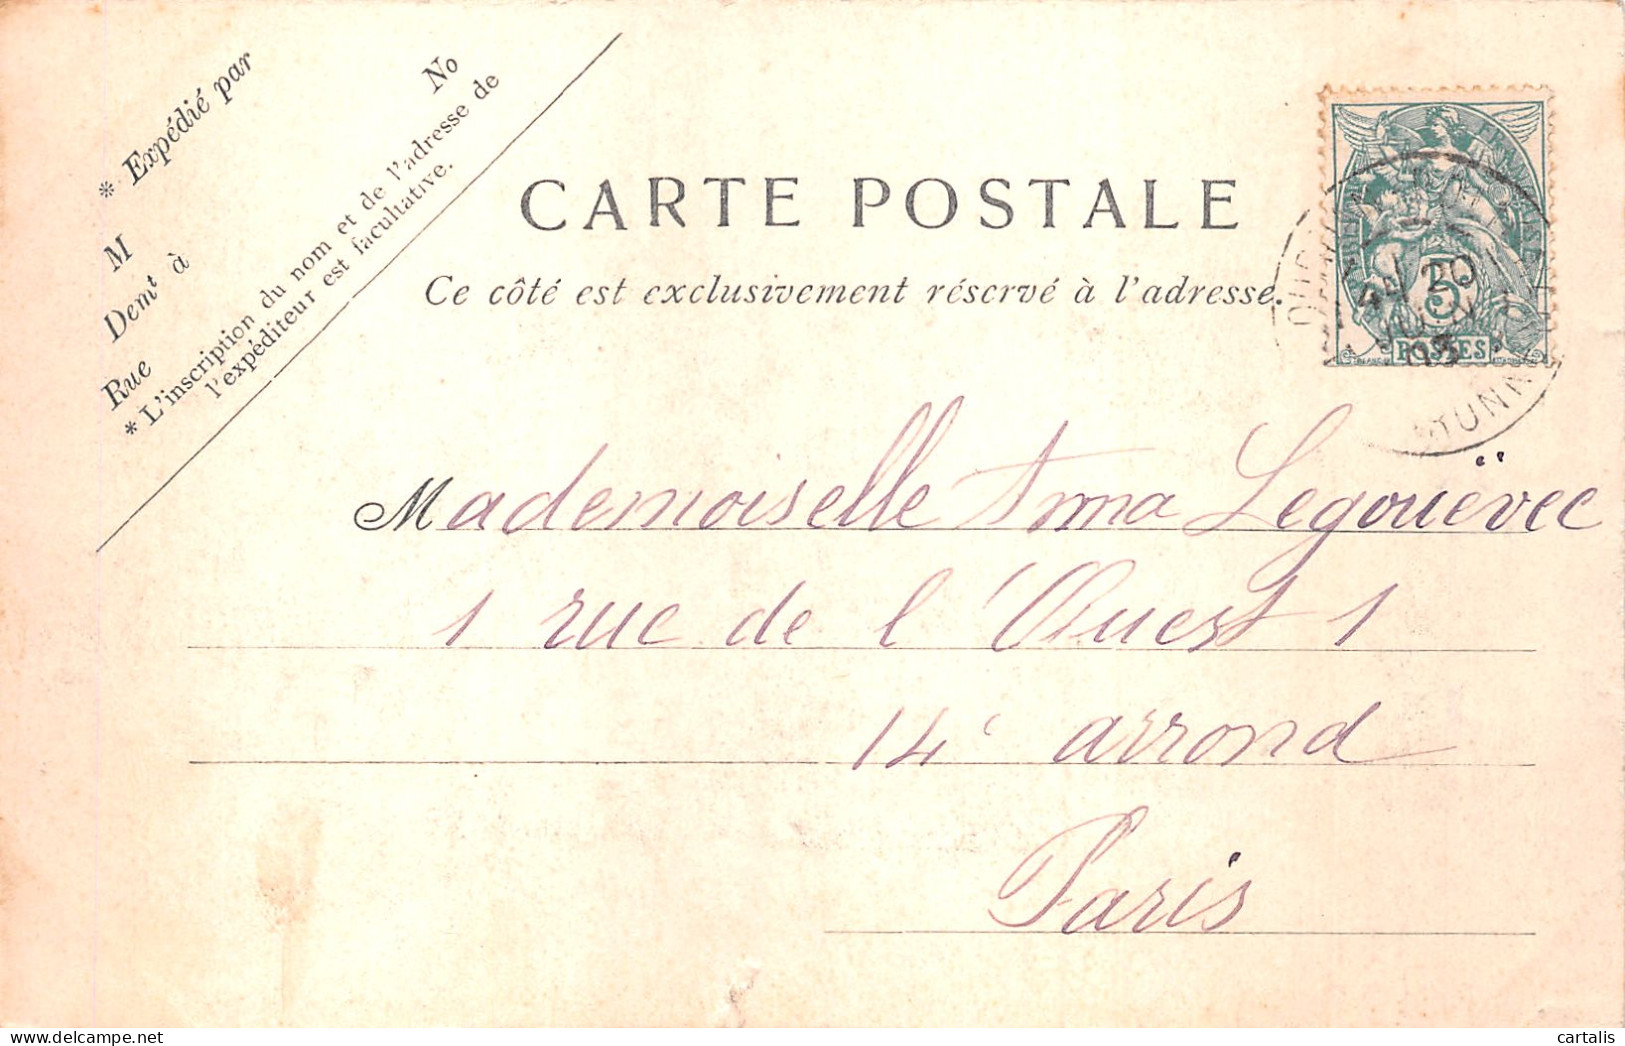 * Expédié par
M
Demt à
Rue
No
* L'inscription du nom et de l'adresse de
l'expéditeur est facultative.
CARTE POSTALE
Ce côté est exclusivement réservé à l'adresse.
5
POSTES
20
03
Mademoiselle Irma Legouëvec
1 rue de l'Ouest 1
14e arrond
Paris
cartalis